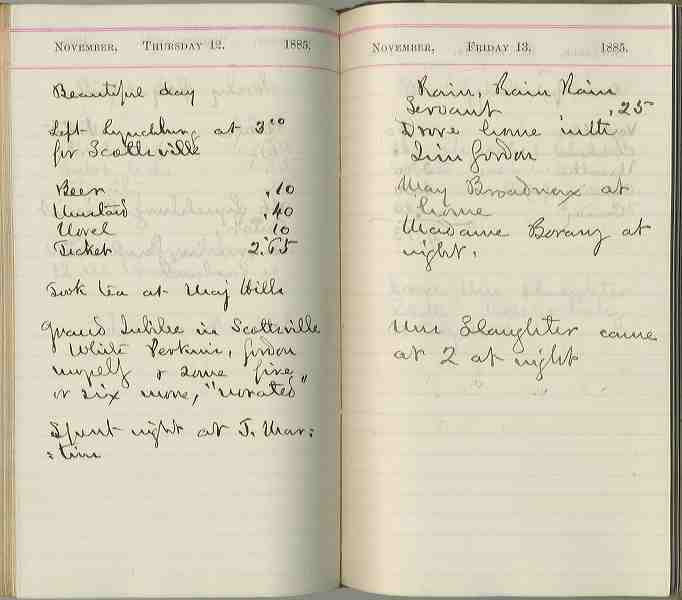 NOVEMBER, THURSDAY 12. 1885.
Beautiful day
Left Lynchburg at 3⁰⁰
for Scottsville
Beer .10
.40
Novel 10
Ticket 2.65
Took tea at Maj Hills
Grand Jubilee in Scottsville
White Perkins, Gordon
myself & some five
or six more, "orated"
Spent night at J. Mar:
:tin
NOVEMBER, FRIDAY 13. 1885.
Rain, Rain Rain
Servant .25
Drove home with
Jim Gordon
May Broadnax at
home
Madame at
night.
Slaughter came
at 2 at night